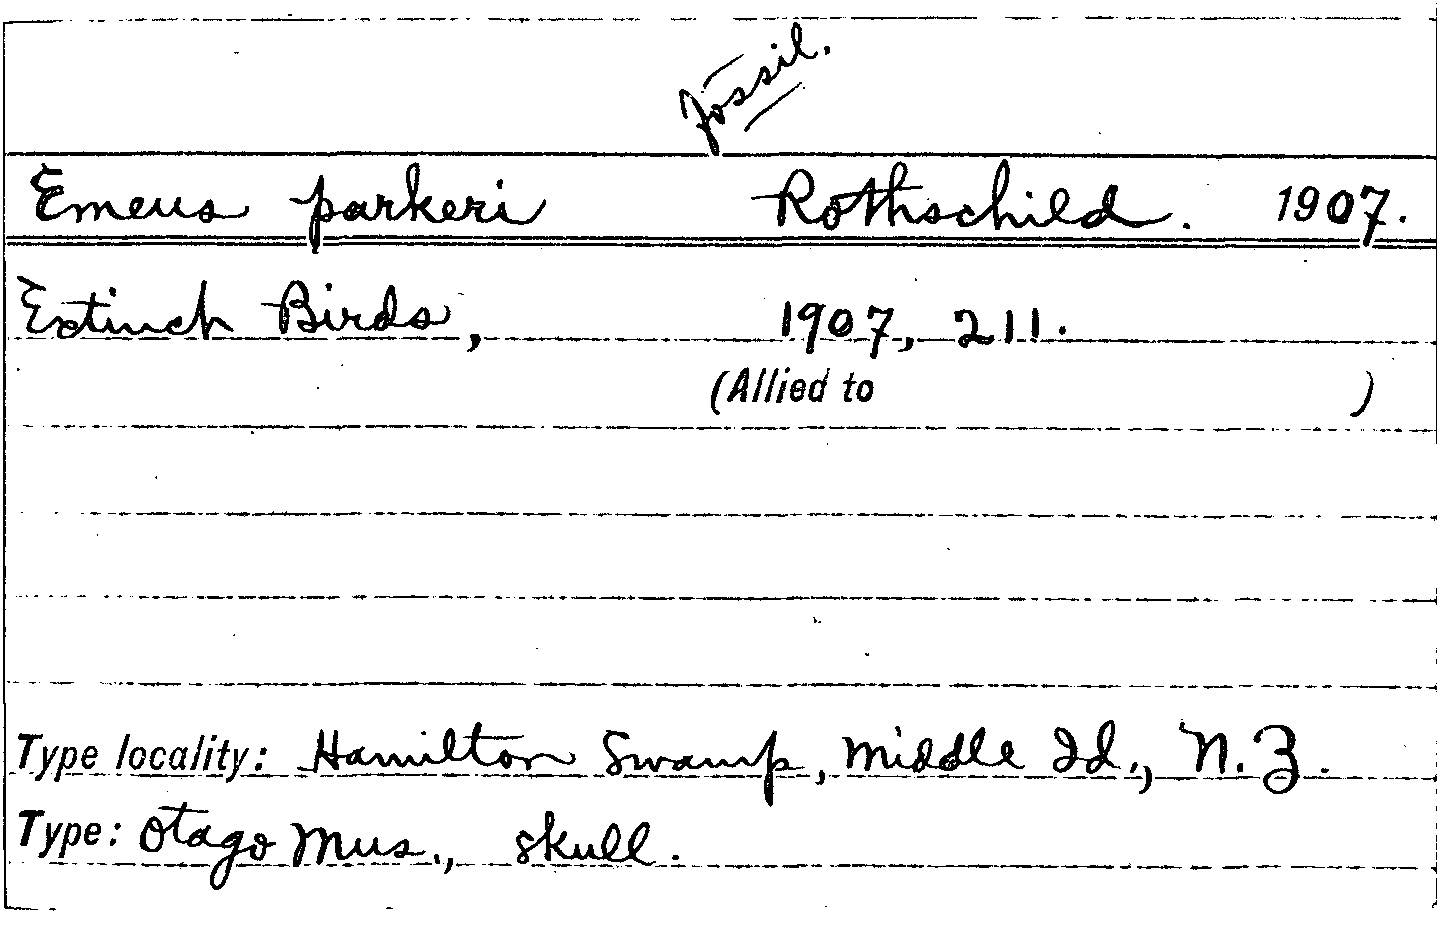 Fossil.
Emeus parkeri Rothschild. 1907.
Extinct Birds, 1907, 211.
(Allied to )
Type locality: Hamilton Swamp, Middle Id., N.Z.
Type: Otago Mus., skull.